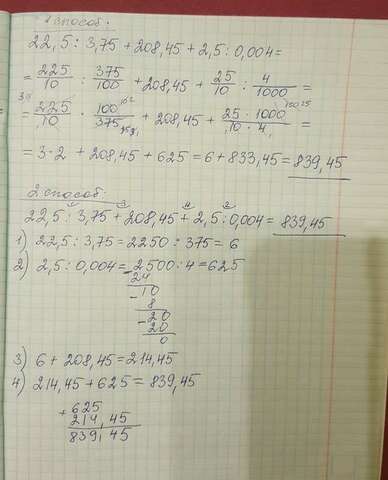 1 способ:
22,5 : 3,75 + 208,45 + 2,5 : 0,004 =
= 225/10 : 375/100 + 208,45 + 25/10 : 4/1000 =
= 225/10 · 100/375 + 208,45 + 25 · 1000/10 · 4 =
= 3 · 2 + 208,45 + 625 = 6 + 833,45 = 839,45
2 способ:
22,5 : 3,75 + 208,45 + 2,5 : 0,004 = 839,45
1) 22,5 : 3,75 = 2250 : 375 = 6
2) 2,5 : 0,004 = 2500 : 4 = 625
24
- 10
8
- 20
20
0
3) 6 + 208,45 = 214,45
4) 214,45 + 625 = 839,45
+ 625
214,45
839,45